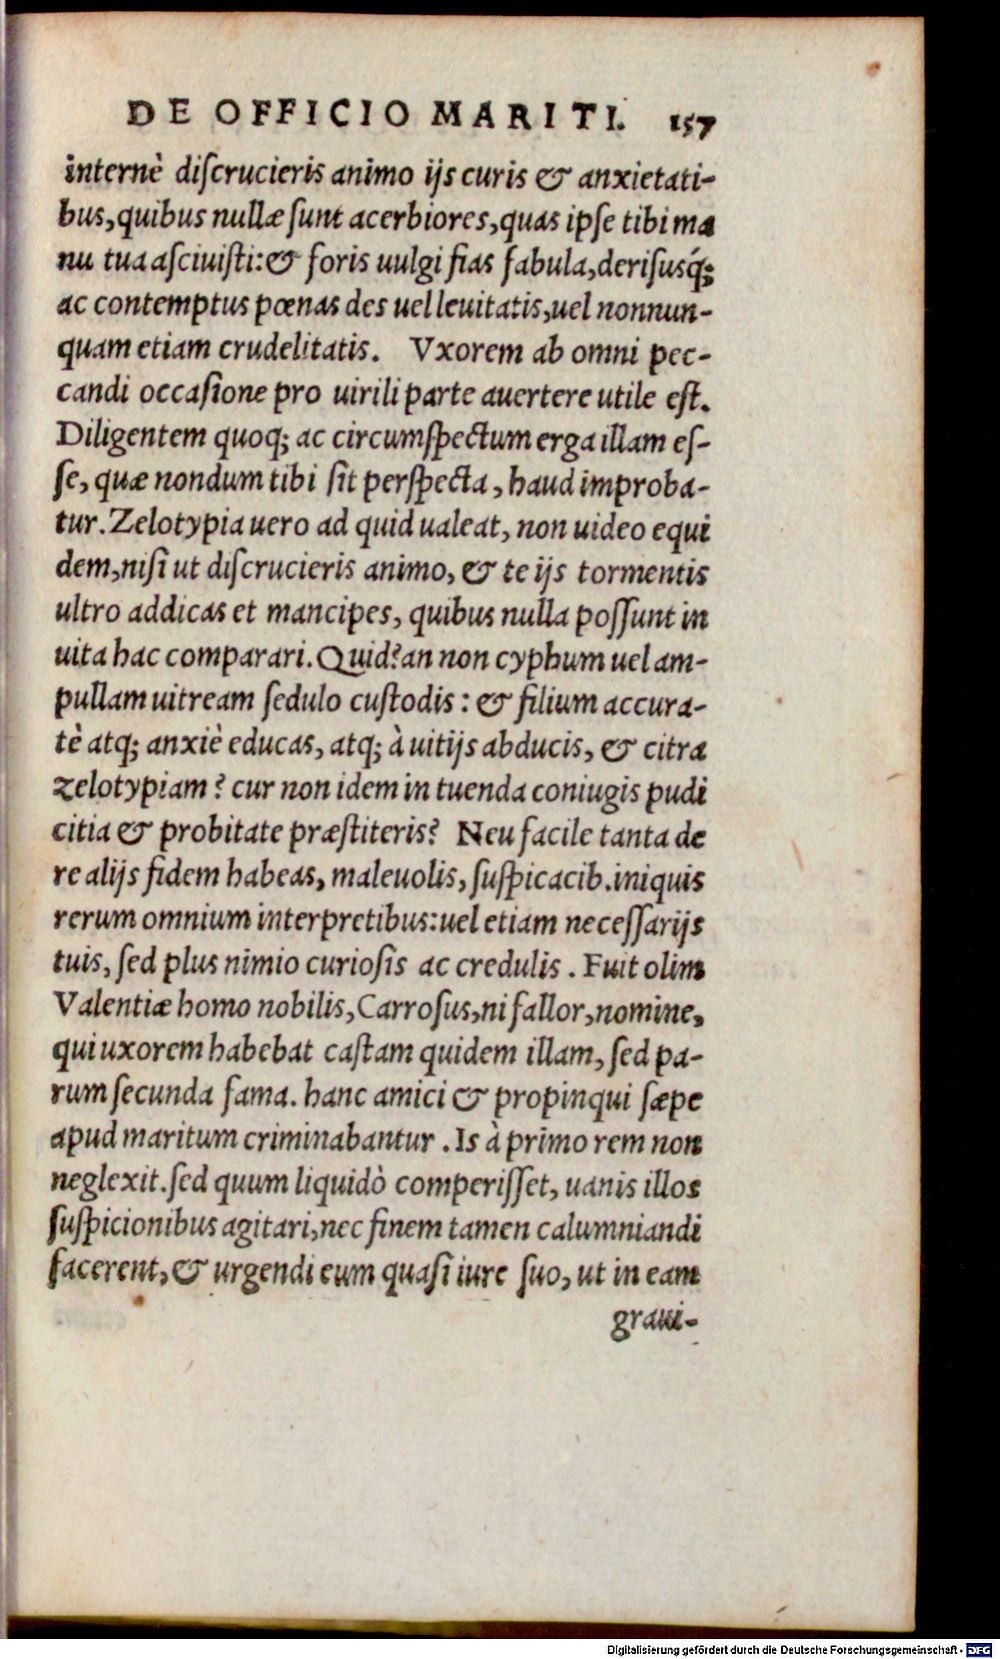 DE OFFICIO MARITI. 157
internè diſcrucieris animo ijs curis & anxietati-
bus, quibus nullæ ſunt acerbiores, quas ipſe tibi ma
nu tua aſciuiſti: & foris uulgi fias fabula, deriſusq́;
ac contemptus pœnas des uel leuitatis, uel nonnun-
quam etiam crudelitatis. Vxorem ab omni pec-
candi occaſione pro uirili parte auertere utile eſt.
Diligentem quoq; ac circumſpectum erga illam eſ-
ſe, quæ nondum tibi ſit perſpecta, haud improba-
tur. Zelotypia uero ad quid ualeat, non uideo equi
dem, niſi ut diſcrucieris animo, & te ijs tormentis
ultro addicas et mancipes, quibus nulla poſſunt in
uita hac comparari. Quid? an non cyphum uel am-
pullam uitream ſedulo cuſtodis: & filium accura-
tè atq; anxiè educas, atq; à uitijs abducis, & citra
zelotypiam? cur non idem in tuenda coniugis pudi
citia & probitate præſtiteris? Neu facile tanta de
re alijs fidem habeas, maleuolis, ſuſpicacib. iniquis
rerum omnium interpretibus: uel etiam neceſſarijs
tuis, ſed plus nimio curioſis ac credulis. Fuit olim
Valentiæ homo nobilis, Carroſus, ni fallor, nomine,
qui uxorem habebat caſtam quidem illam, ſed pa-
rum ſecunda fama. hanc amici & propinqui ſæpe
apud maritum criminabantur. Is à primo rem non
neglexit. ſed quum liquidò comperiſſet, uanis illos
ſuſpicionibus agitari, nec finem tamen calumniandi
facerent, & urgendi eum quaſi iure ſuo, ut in eam
graui-
Digitalisierung gefördert durch die Deutsche Forschungsgemeinschaft - DFG